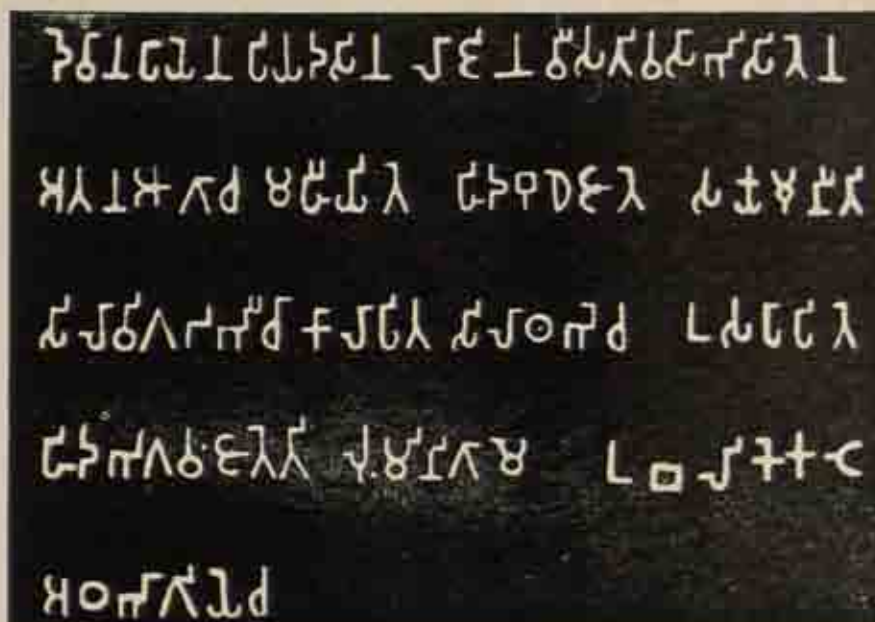 𑀤𑁂𑀯𑀸𑀦𑀧𑀺𑀬𑁂𑀦 𑀧𑀺𑀬𑀤𑀲𑀺𑀦 𑀮𑀸𑀚𑀺𑀦 𑀯𑀻𑀲𑀢𑀺𑀯𑀲𑀸𑀪𑀺𑀲𑀺𑀢𑁂𑀦
𑀅𑀢𑀦 𑀆𑀕𑀸𑀘 𑀫𑀳𑀻𑀬𑀺𑀢𑁂 𑀳𑀺𑀤 𑀩𑀼𑀥𑁂 𑀚𑀸𑀢𑁂 𑀲𑀓𑁆𑀬𑀫𑀼𑀦𑀻𑀢𑀺
𑀲𑀺𑀮𑀸𑀯𑀺𑀕𑀟𑀪𑀻𑀘𑀸 𑀓𑀸𑀮𑀸𑀧𑀺𑀢 𑀲𑀺𑀮𑀸𑀣𑀪𑁂 𑀘 𑀉𑀲𑀧𑀸𑀧𑀺𑀢𑁂
𑀳𑀺𑀤 𑀪𑀕𑀯𑀁 𑀚𑀸𑀢𑁂𑀢𑀺 𑀮𑀼𑀁𑀫𑀺𑀦𑀺𑀕𑀸𑀫𑁂 𑀉𑀩𑀮𑀺𑀓𑁂 𑀓𑀝𑁂
𑀅𑀞𑀪𑀸𑀕𑀺𑀬𑁂 𑀘